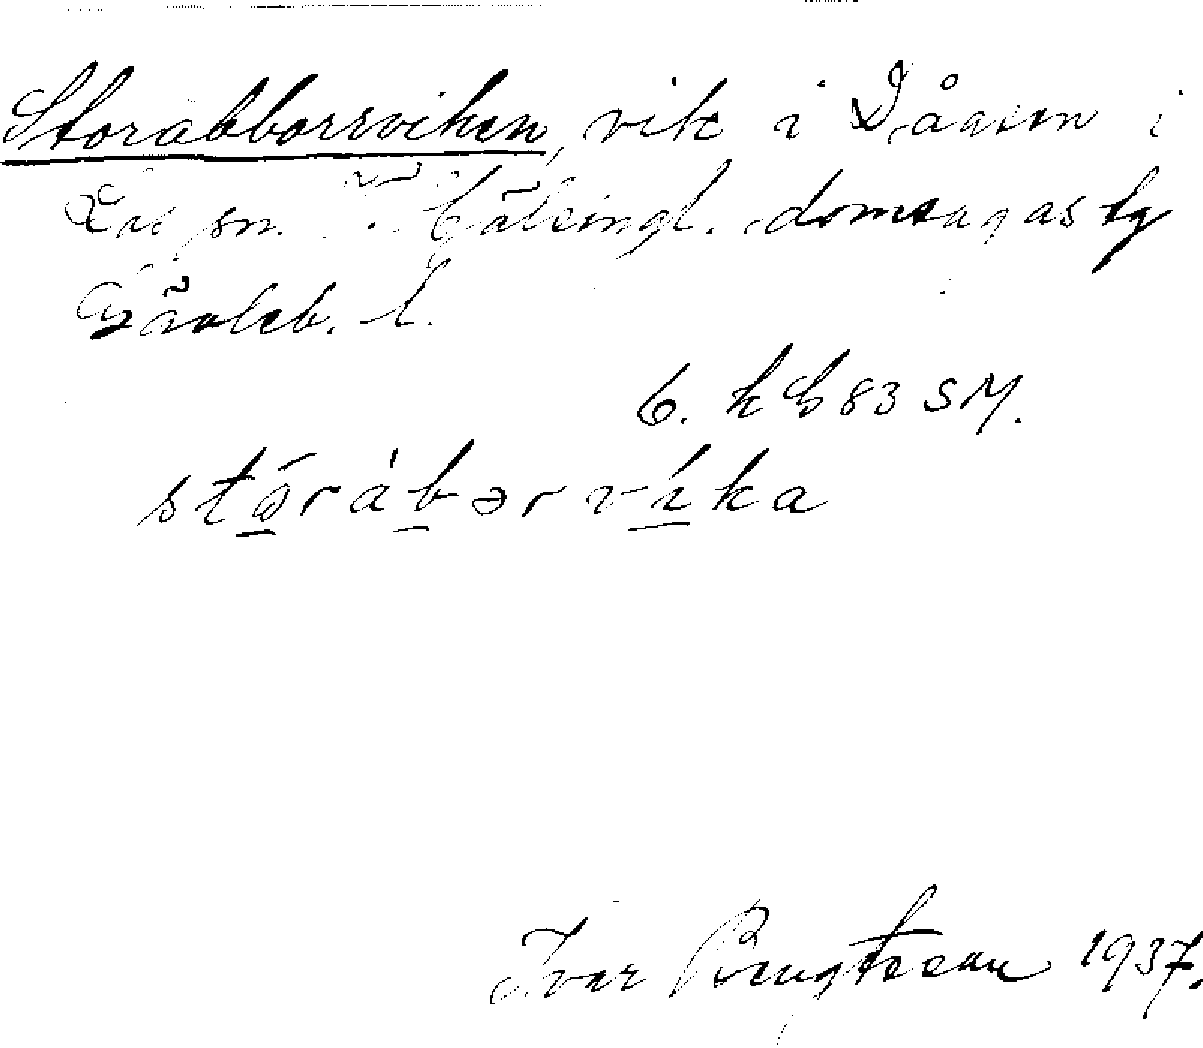 Storabborrviken, vik i Dåasen i
Los sn. V. Hälsingl. domsagas tg
Gävleb. l.
6. k G 83 SM.
stǿrábər víka
Ivar Bengtsson 1937.